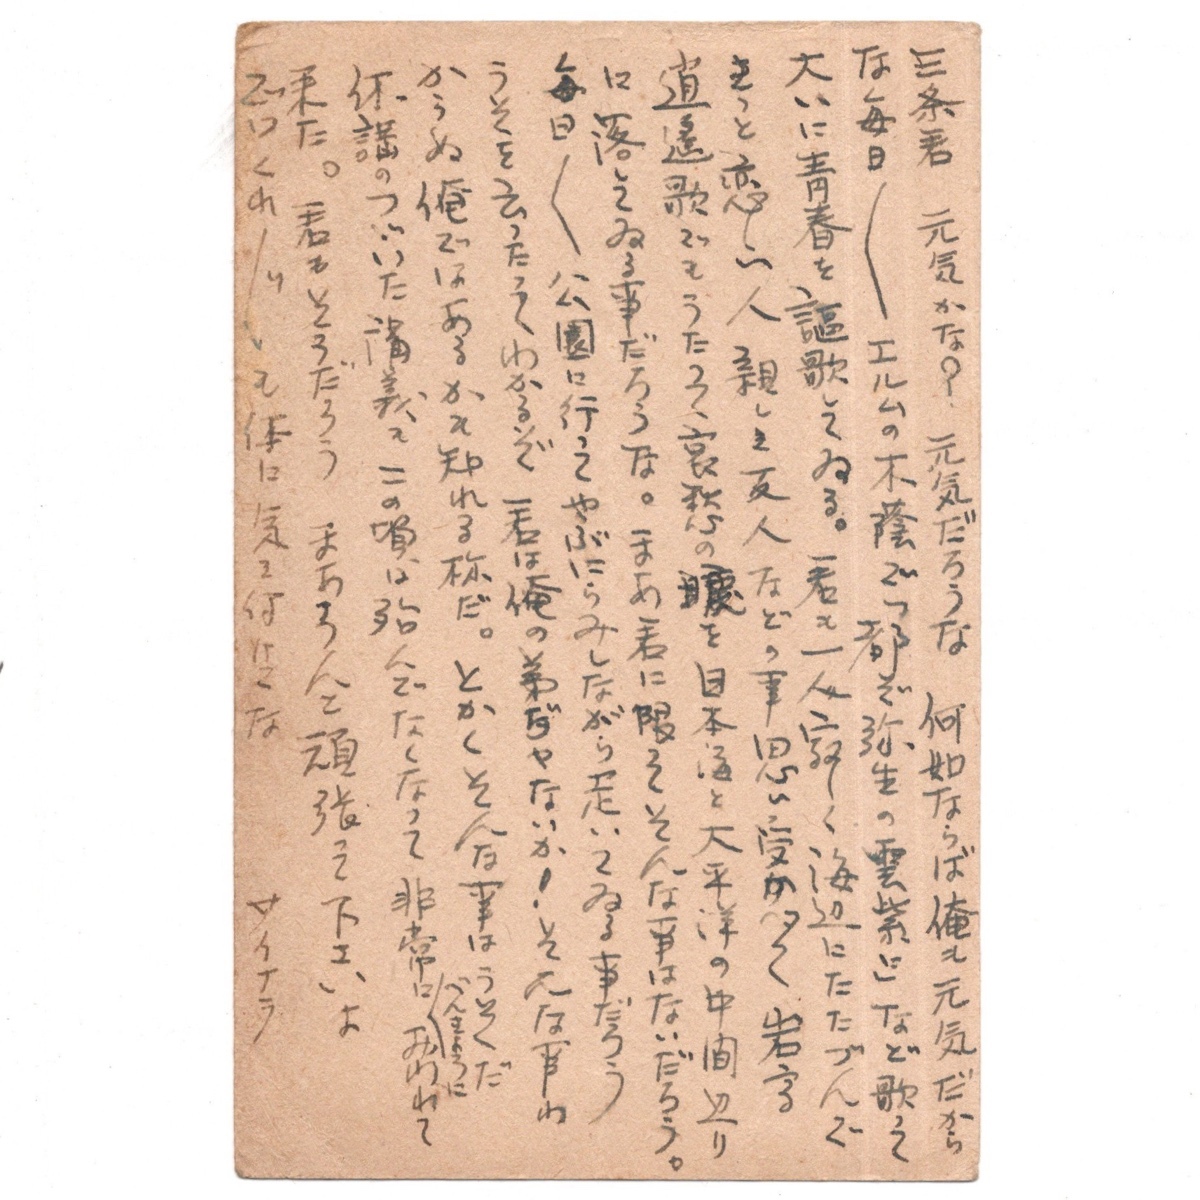 三条君　元気かな？　元気だろうな　何如ならば俺も元気だから
な毎日〱エルムの木蔭で「都ぞ弥生の雲紫に」など歌って
大いに青春を謳歌してゐる。君も一人寂しく海辺にたたづんで
きっと恋しい人　親しき友人などの事思い受かべて　岩窟
逍遥歌でもうたって、哀愁の を日本海と大平洋の中間辺り
に落してゐる事だろうな。まあ君に限ってそんな事はないだろう。
毎日〱　公園に行ってやぶにらみしながら歩いてゐる事だろう
うそを云ったってわかるぞ　君は俺の弟ぢゃないか！そんな事わ
からぬ俺ではあるかも知れる 。とかくそんな事はうそだ
休講のつづいた講義もこの頃は殆んどなくなって非常にべんきょうに みわれて
来た。君もそうだろう　まあうんと頑張って下さいよ
でわくれ〲も体に気を付けてな　　サイナラ